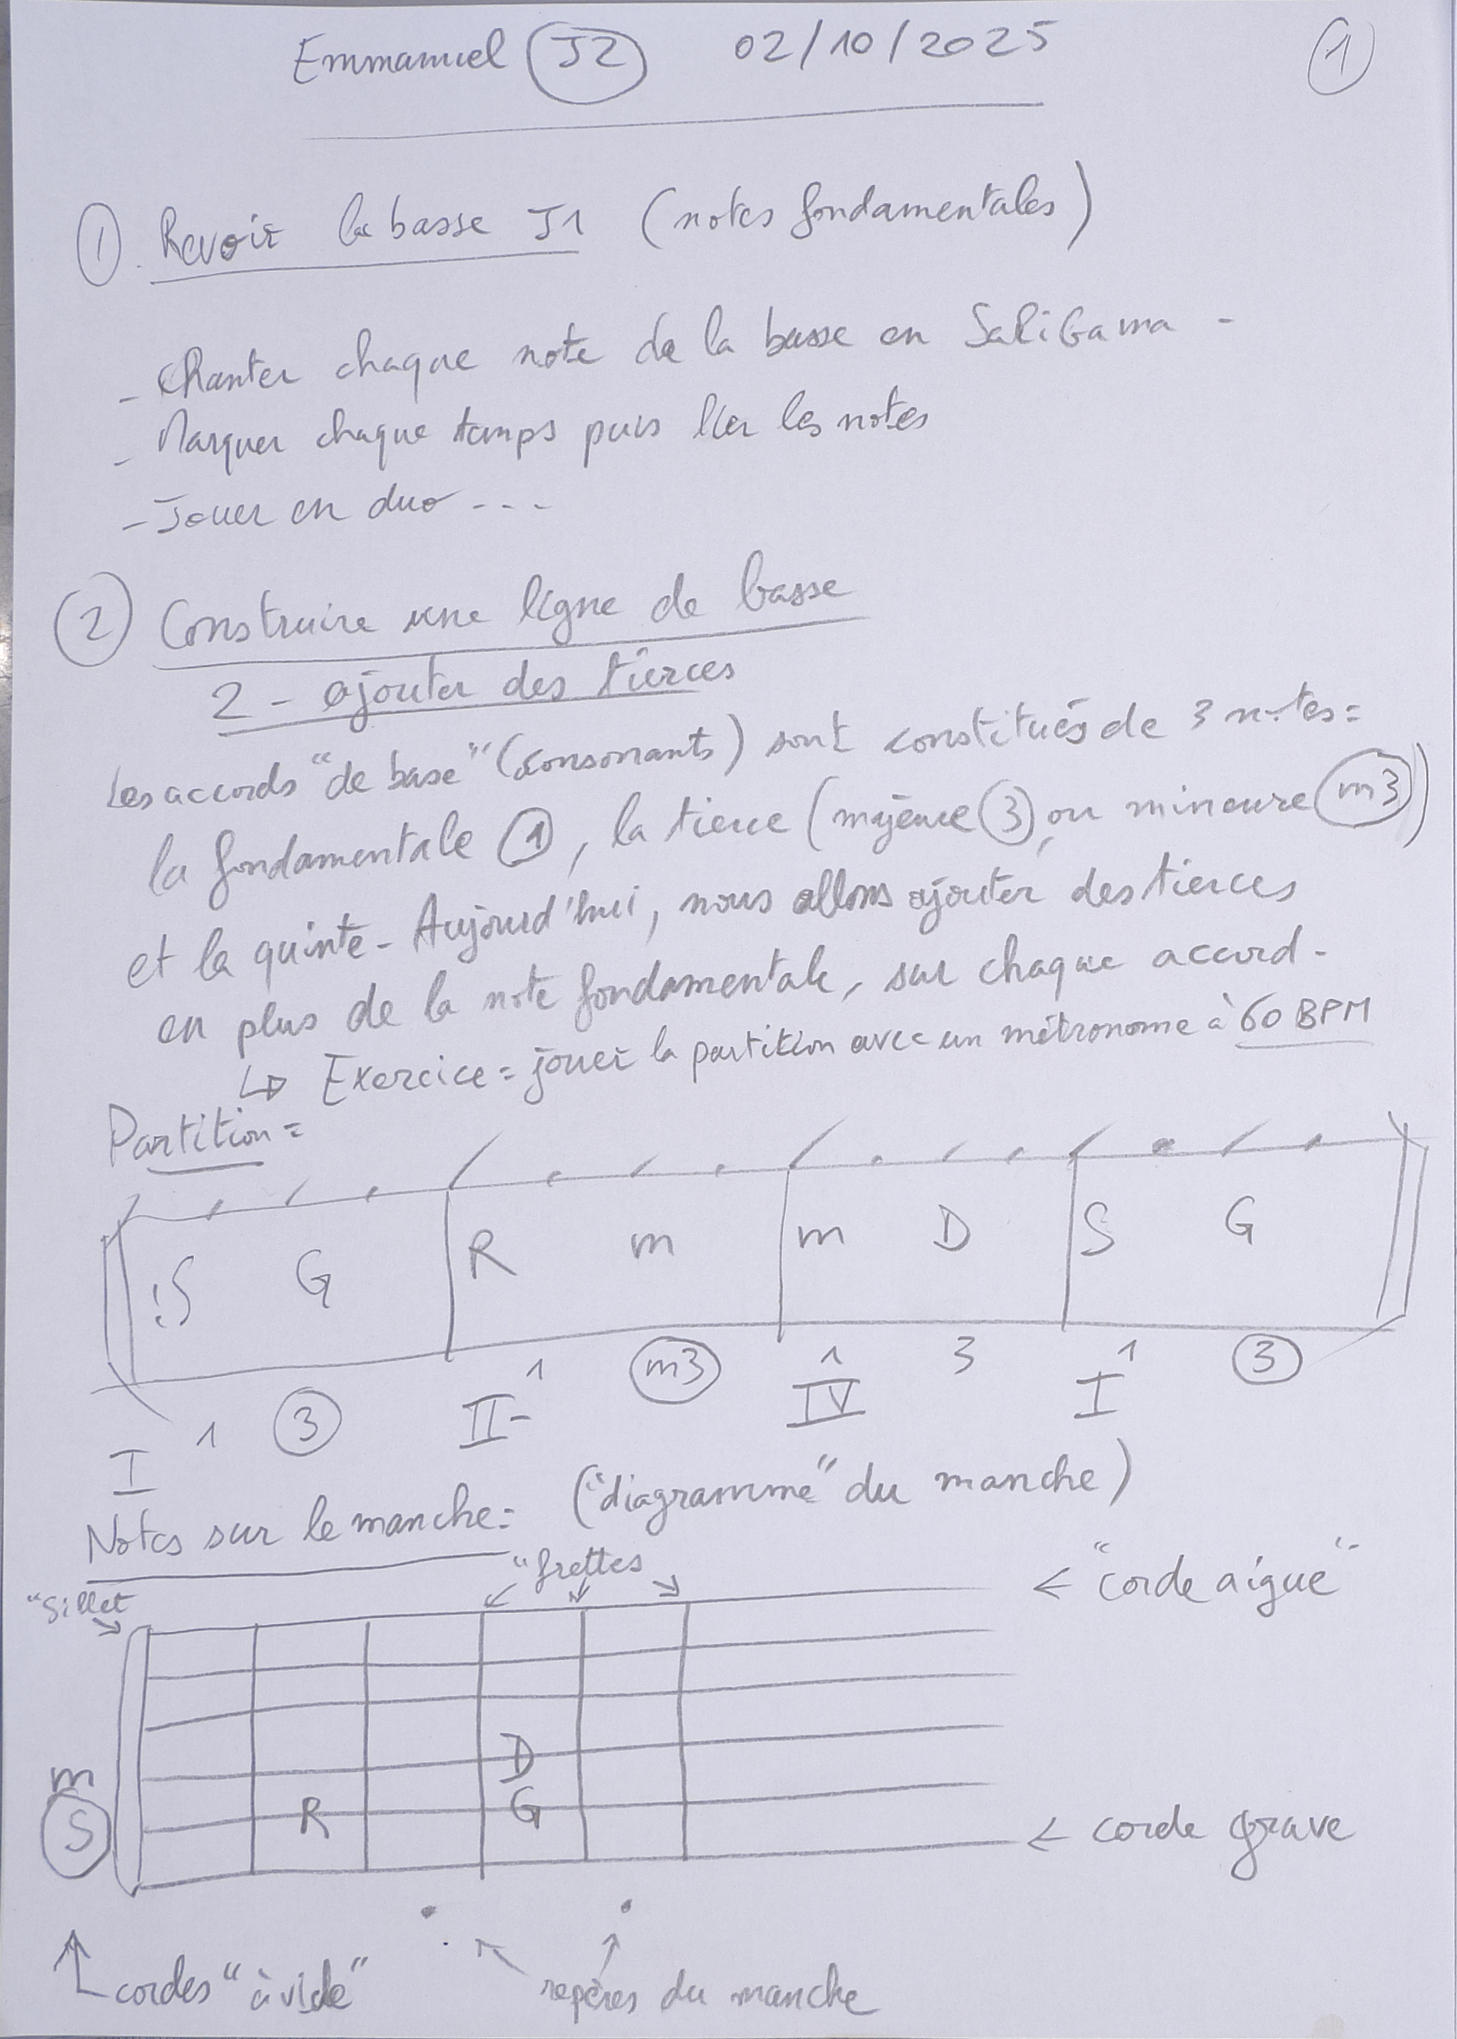 Emmanuel J2 02/10/2025 1
1. Revoir la basse J1 (notes fondamentales)
- Chanter chaque note de la basse en SaRiGama -
- Marquer chaque temps puis lier les notes
- Jouer en duo ...
2 Construire une ligne de basse
2 - ajouter des tierces
Les accords "de base" (consonants) sont constitués de 3 notes =
la fondamentale 1, la tierce (majeure 3, ou mineure m3))
et la quinte - Aujourd'hui, nous allons ajouter des tierces
en plus de la note fondamentale, sur chaque accord -
↳ Exercice = jouer la partition avec un métronome à 60 BPM
Partition =
:S G R m m D S G
I 1 3 II- 1 m3 IV 1 3 I 1 3
Notes sur le manche = ("diagramme" du manche)
"Sillet "frettes ← "corde aigue"
m D
S R G ← corde grave
cordes "à vide" repères du manche